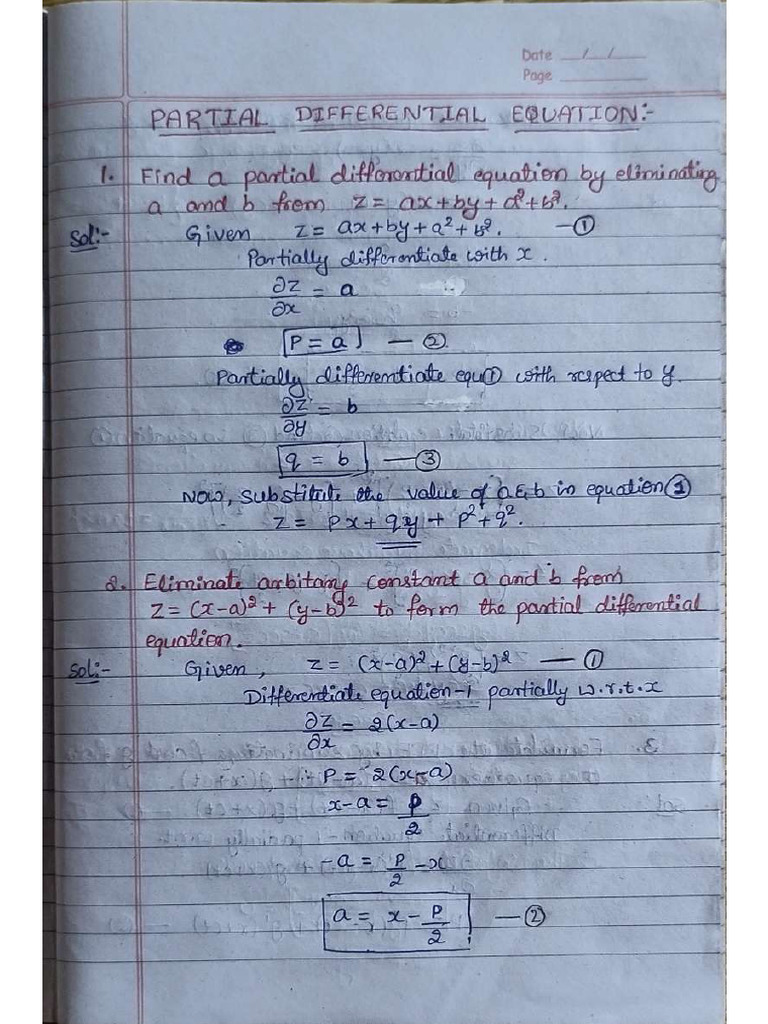 Date __/__/__
Page ________
PARTIAL DIFFERENTIAL EQUATION:-
1. Find a partial differential equation by eliminating
a and b from z = ax+by+a²+b².
Sol:- Given z = ax+by+a²+b². —①
Partially differentiate with x.
∂z/∂x = a
P = a —②
Partially differentiate equ① with respect to y.
∂z/∂y = b
q = b —③
Now, substitute the value of a & b in equation①
z = px+qy+p²+q².
2. Eliminate arbitary constant a and b from
z = (x-a)²+(y-b)² to form the partial differential
equation.
Sol:- Given, z = (x-a)²+(y-b)² —①
Differentiate equation-1 partially w.r.t.x
∂z/∂x = 2(x-a)
P = 2(x-a)
x-a = P/2
-a = P/2 - x
a = x - P/2 —②